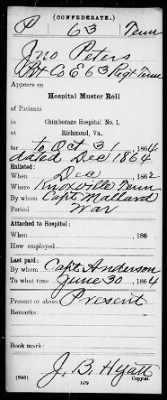 (CONFEDERATE.)
P 63 Tenn
Jno Peters
Pvt Co E 63 Regt Tenn
Appears on
Hospital Muster Roll
of Patients
in Chimborazo Hospital No. 1,
Richmond, Va.,
for to Oct 31, 1864
dated Dec 1864
Enlisted:
When Dec, 1862
Where Knoxville Tenn
By whom Capt. Mallard
Period War
Attached to Hospital:
When, 186
How employed
Last paid:
By whom Capt. Anderson
To what time June 30, 1864
Present or absent Present
Remarks:
Book mark:
J. B. Hyatt
(645) Copyist.